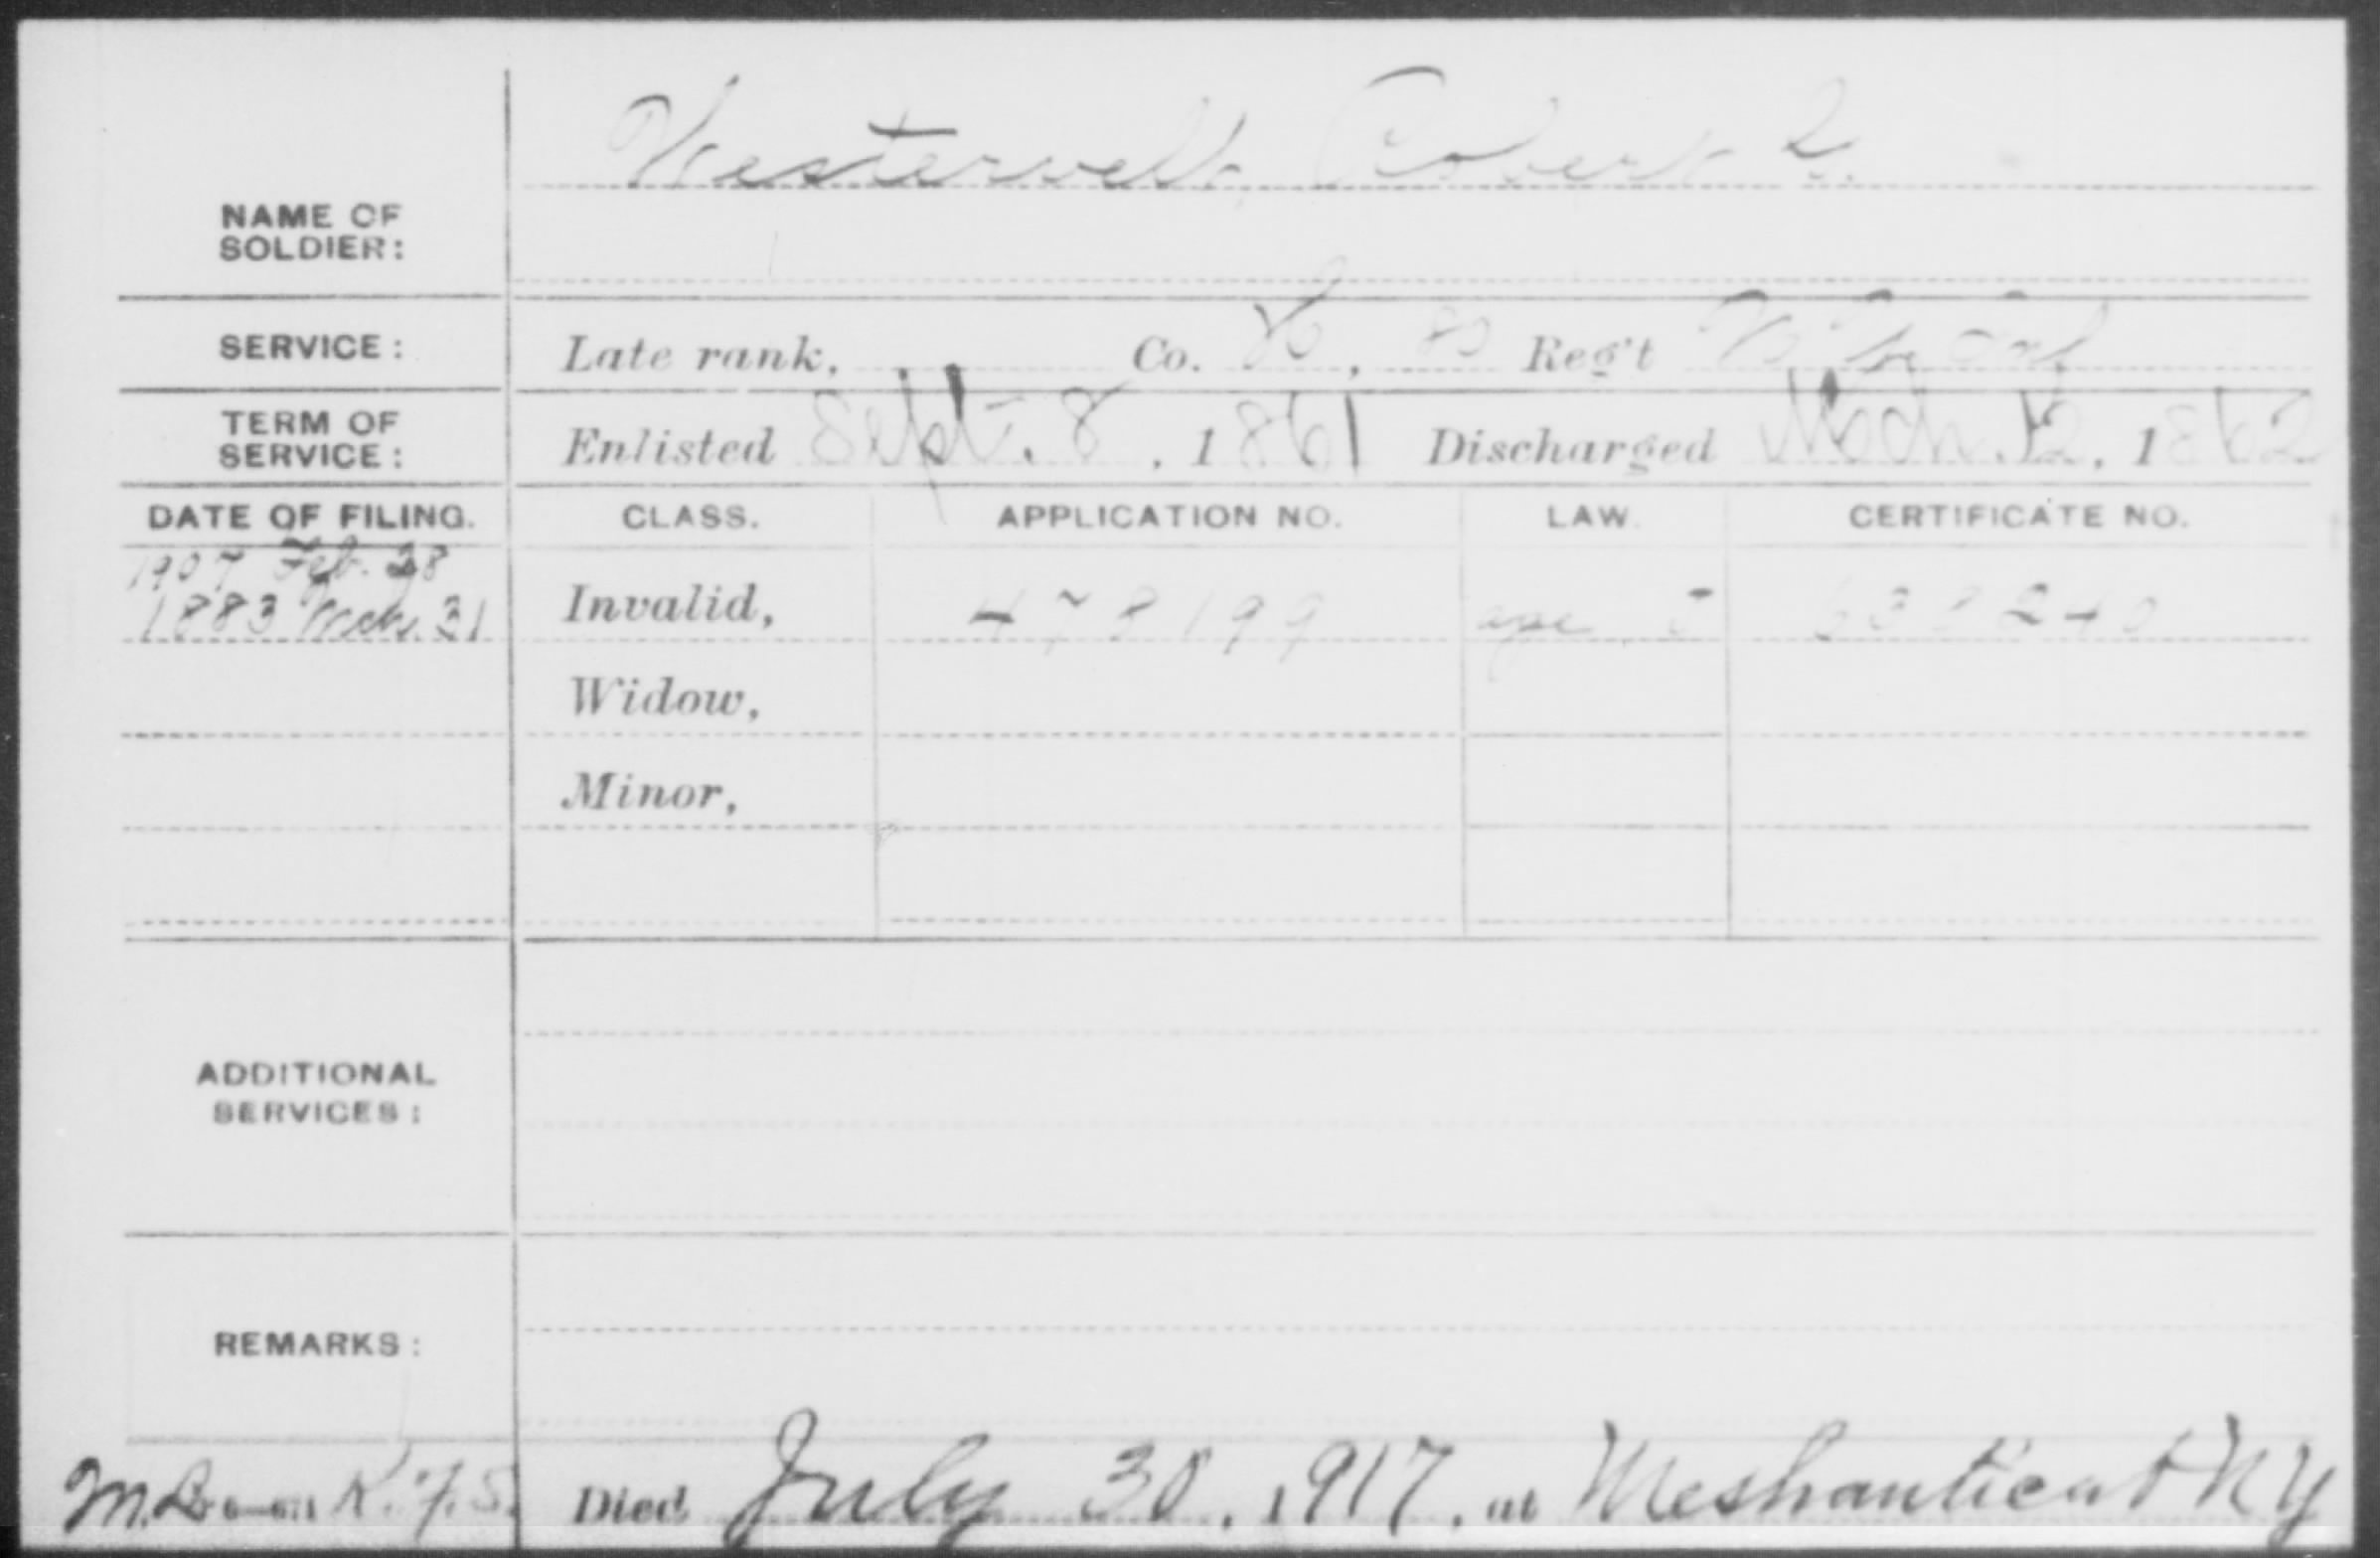 Westervelt, Robert S.
NAME OF
SOLDIER:
SERVICE: Late rank, Co. , 80 Reg't N.Y. Inf
TERM OF
SERVICE: Enlisted Sept. 8, 1861 Discharged Mch. 12, 1862
DATE OF FILING. CLASS. APPLICATION NO. LAW. CERTIFICATE NO.
1907 Feb. 28
1883 Mch. 31 Invalid, 478199 age 240
Widow,
Minor,
ADDITIONAL
SERVICES:
REMARKS:
Died July 30, 1917, at Meshanticut N Y